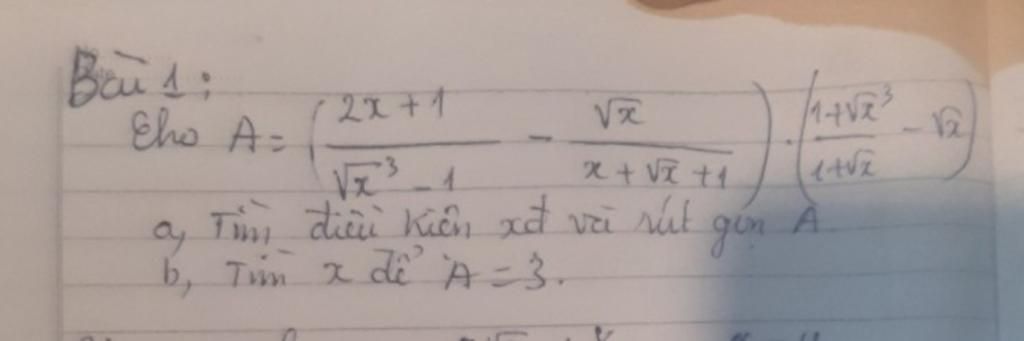 Bài 1:
Cho A = ( (2x + 1)/(√x³ - 1) - √x/(x + √x + 1) ) . ( (1+√x³)/(1+√x) - √x )
a, Tìm điều kiện xđ và rút gọn A
b, Tìm x để A = 3.